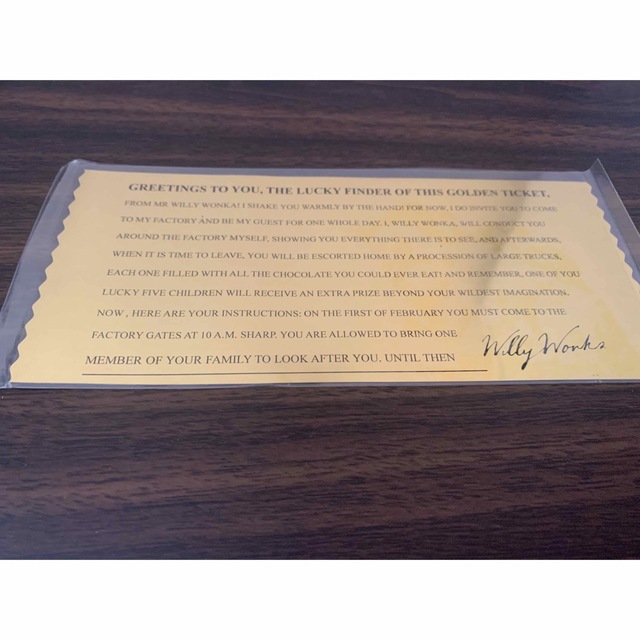 GREETINGS TO YOU, THE LUCKY FINDER OF THIS GOLDEN TICKET,
FROM MR WILLY WONKA! I SHAKE YOU WARMLY BY THE HAND! FOR NOW, I DO INVITE YOU TO COME
TO MY FACTORY AND BE MY GUEST FOR ONE WHOLE DAY. I, WILLY WONKA, WILL CONDUCT YOU
AROUND THE FACTORY MYSELF, SHOWING YOU EVERYTHING THERE IS TO SEE, AND AFTERWARDS,
WHEN IT IS TIME TO LEAVE, YOU WILL BE ESCORTED HOME BY A PROCESSION OF LARGE TRUCKS,
EACH ONE FILLED WITH ALL THE CHOCOLATE YOU COULD EVER EAT! AND REMEMBER, ONE OF YOU
LUCKY FIVE CHILDREN WILL RECEIVE AN EXTRA PRIZE BEYOND YOUR WILDEST IMAGINATION.
NOW , HERE ARE YOUR INSTRUCTIONS: ON THE FIRST OF FEBRUARY YOU MUST COME TO THE
FACTORY GATES AT 10 A.M. SHARP. YOU ARE ALLOWED TO BRING ONE
MEMBER OF YOUR FAMILY TO LOOK AFTER YOU. UNTIL THEN
Willy Wonka